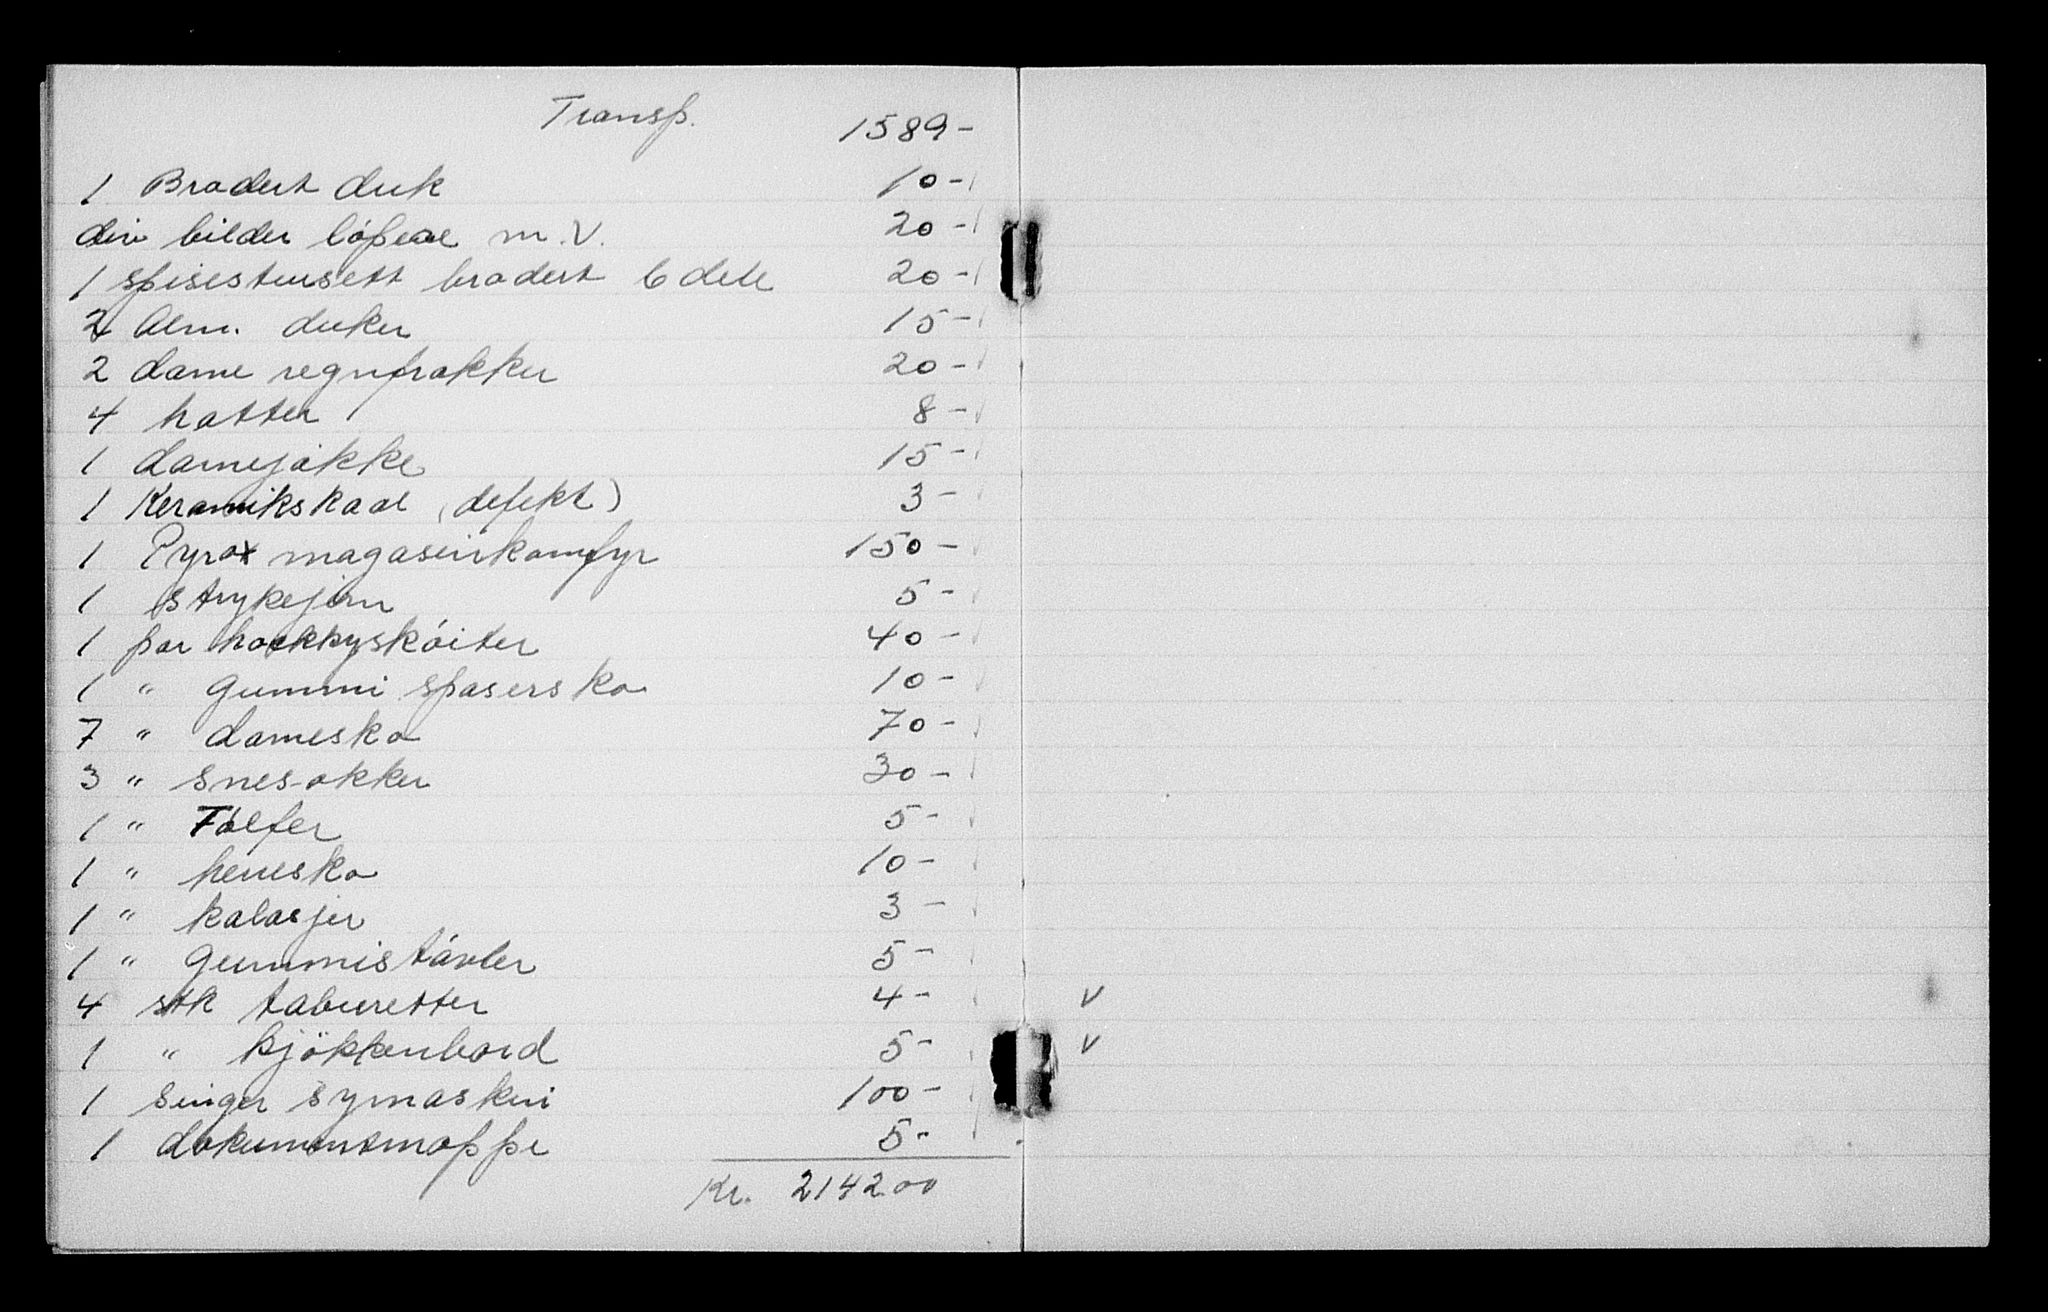 Transp. 1589-
1 Brodert duk 10-
div bilder löpere m.V. 20-
1 spisestuesett brodert 6 dele 20-
2 Alm. duker 15-
2 dame regnfrakker 20-
4 hatter 8-
1 damejakke 15-
1 Keramikskaal (defekt) 3-
1 Pyrox magasinkomfyr 150-
1 strykejern 5-
1 par hockkyskóiter 40-
1 " gummi spasersko 10-
7 " damesko 70-
3 " snesokker 30-
1 " Tóffer 5-
1 " herresko 10-
1 " kalosjer 3-
1 " gummistóvler 5-
4 stk taburetter 4- V
1 " kjökkenbord 5- V
1 singer symaskin 100-
1 dokumentmappe 5-
Kr. 2142.00